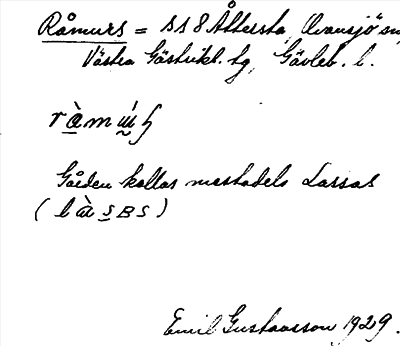 Råmurs = ss 8 Åttersta, Ovansjö sn,
Västra Gästrikl. tg, Gävleb. l.
Gården kallas mestadels Lassas
Emil Gustavsson 1929.